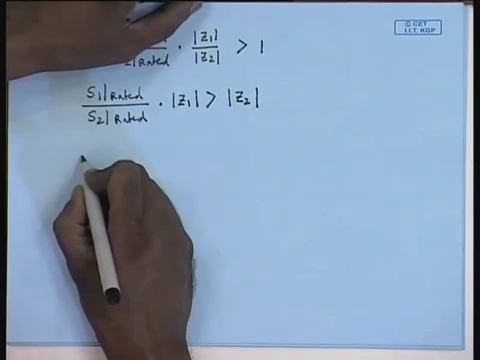 © CET
I.I.T. KGP
2|Rated · |Z1|/|Z2| > 1
S1|Rated/S2|Rated · |Z1| > |Z2|